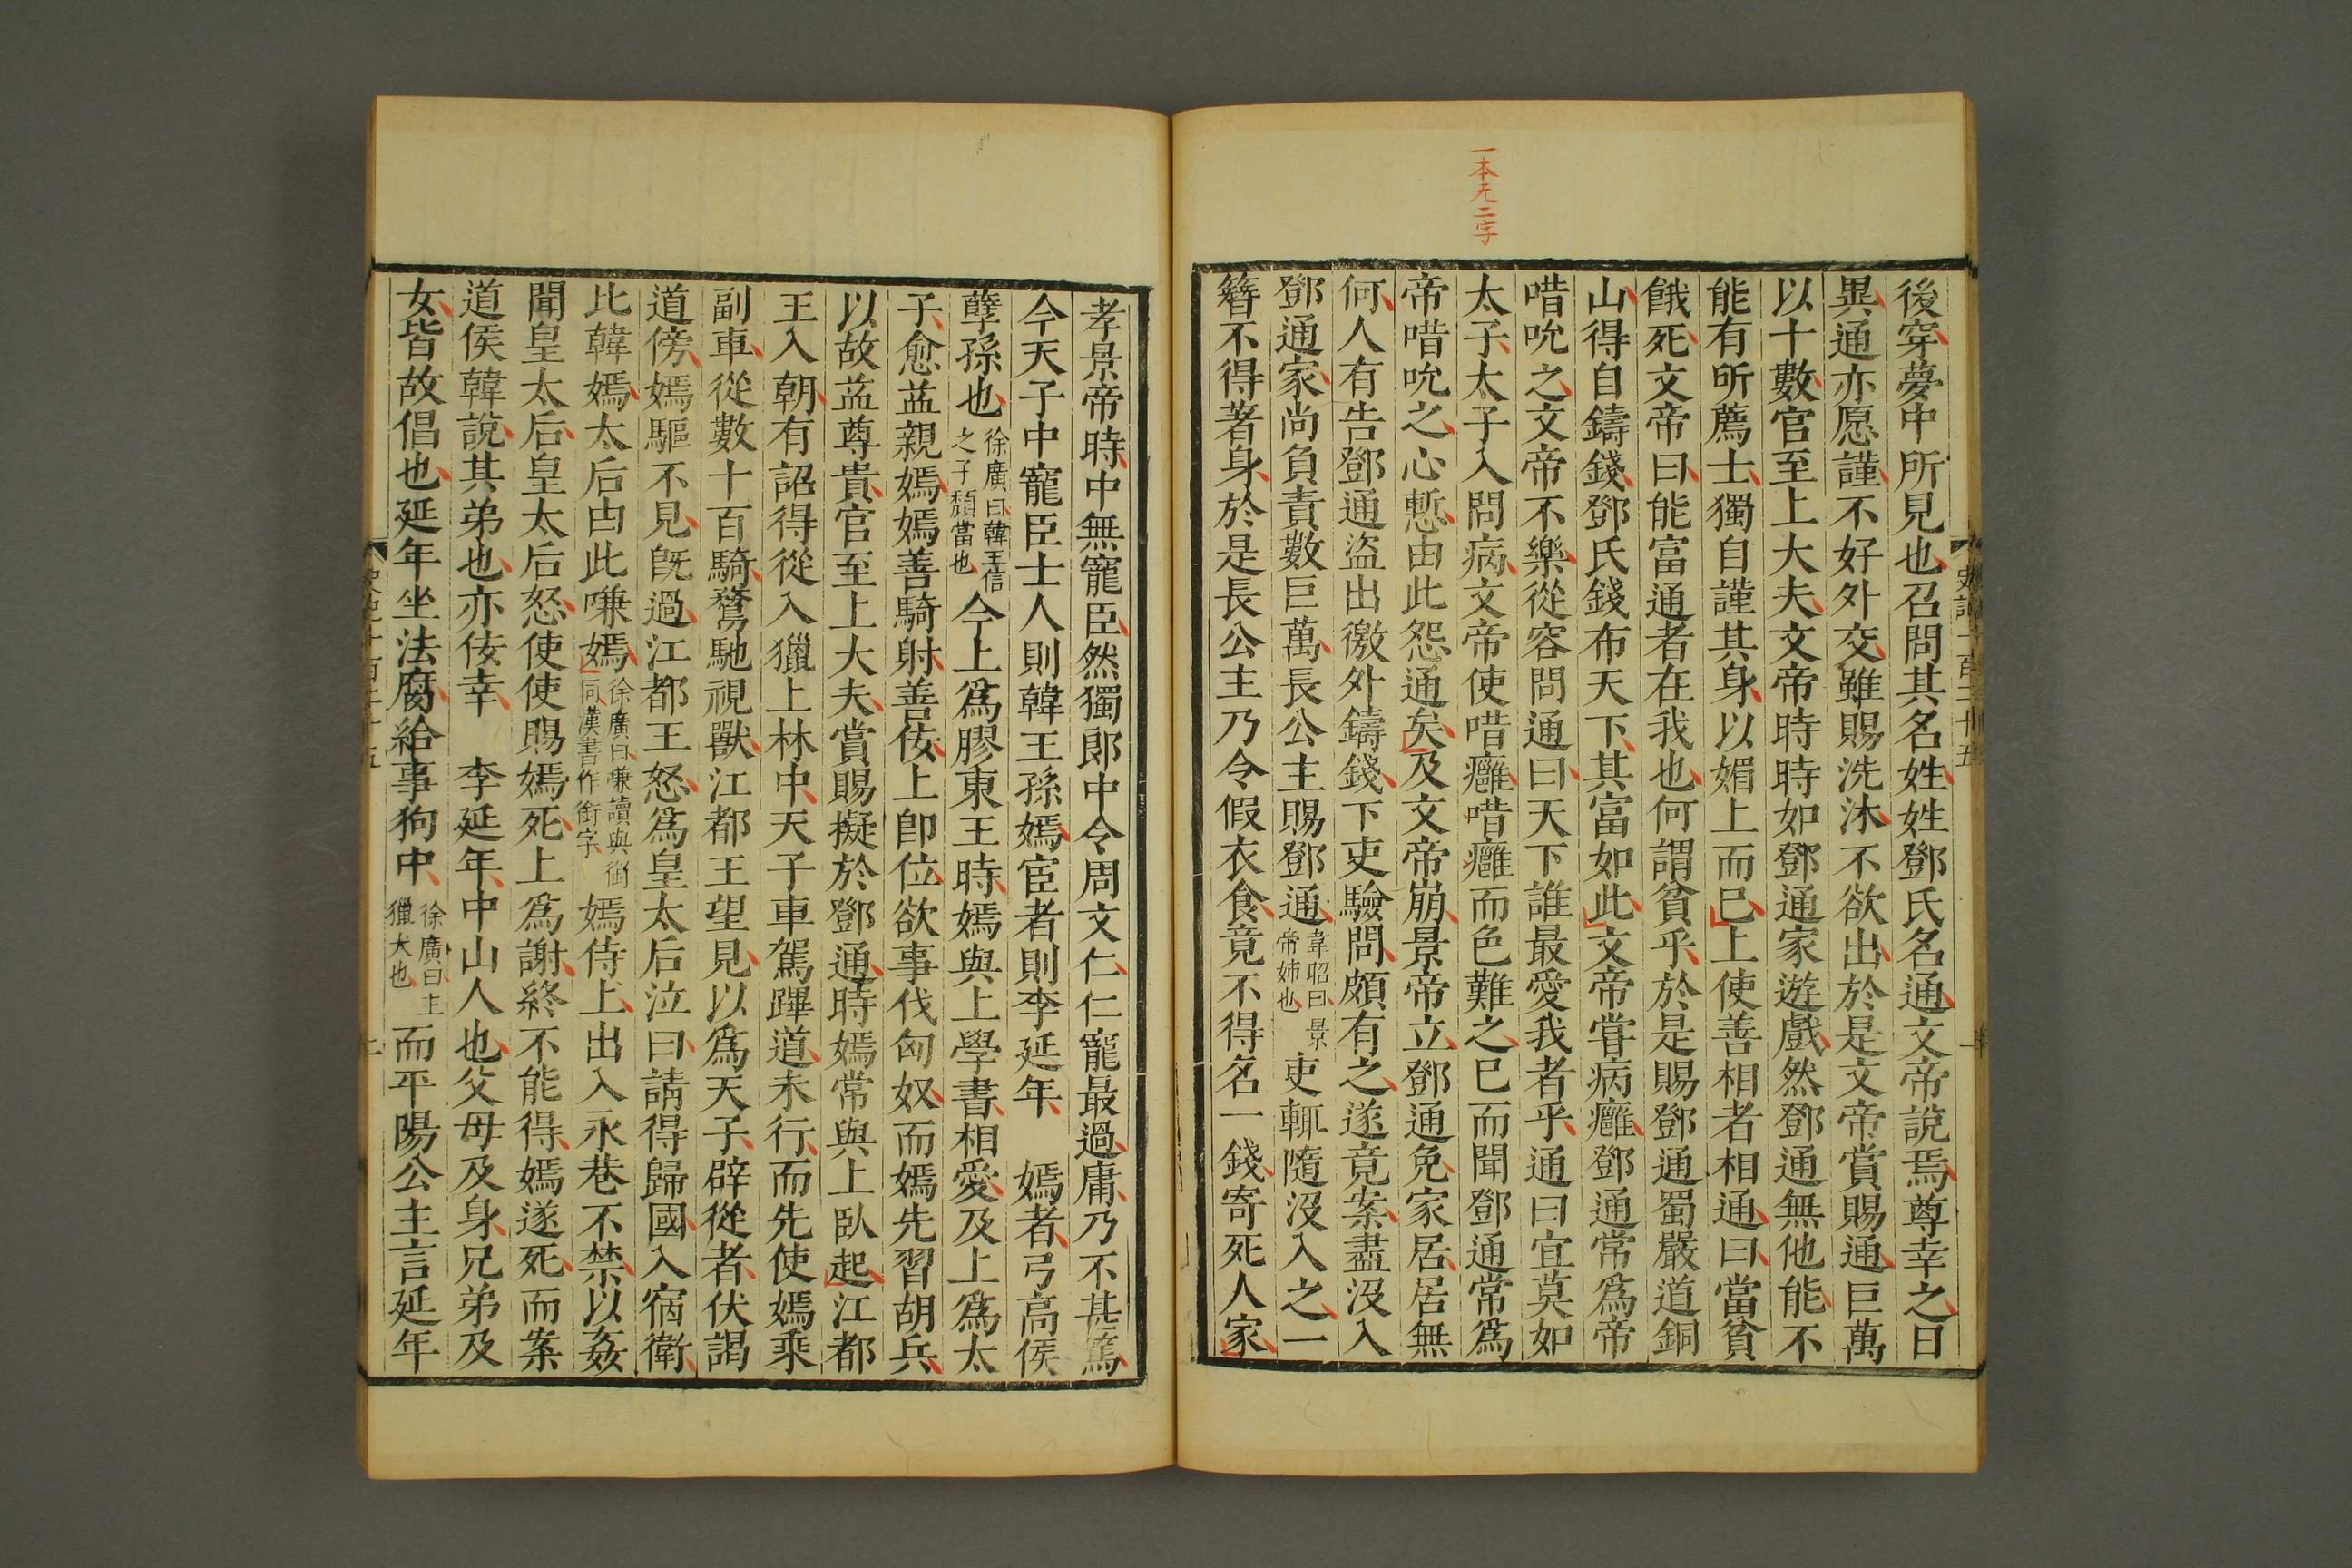 一本无二字
後穿夢中所見也召問其名姓姓鄧氏名通文帝說焉尊幸之日
異通亦愿謹不好外交雖賜洗沐不欲出於是文帝賞賜通巨萬
以十數官至上大夫文帝時時如鄧通家遊戲然鄧通無他能不
能有所薦士獨自謹其身以媚上而已上使善相者相通曰當貧
餓死文帝曰能富通者在我也何謂貧乎於是賜鄧通蜀嚴道銅
山得自鑄錢鄧氏錢布天下其富如此文帝嘗病癰鄧通常爲帝
唶吮之文帝不樂從容問通曰天下誰最愛我者乎通曰宜莫如
太子太子入問病文帝使唶癰唶癰而色難之已而聞鄧通常爲
帝唶吮之心慙由此怨通矣及文帝崩景帝立鄧通免家居居無
何人有告鄧通盜出徼外鑄錢下吏驗問頗有之遂竟案盡沒入
鄧通家尚負責數巨萬長公主賜鄧通韋昭曰景帝姊也吏輒隨沒入之一
簪不得著身於是長公主乃令假衣食竟不得名一錢寄死人家
孝景帝時中無寵臣然獨郎中令周文仁仁寵最過庸乃不甚篤
今天子中寵臣士人則韓王孫嫣宦者則李延年 嫣者弓高侯
孽孫也徐廣曰韓王信之子頹當也今上爲膠東王時嫣與上學書相愛及上爲太
子愈益親嫣嫣善騎射善佞上卽位欲事伐匈奴而嫣先習胡兵
以故益尊貴官至上大夫賞賜擬於鄧通時嫣常與上臥起江都
王入朝有詔得從入獵上林中天子車駕蹕道未行而先使嫣乘
副車從數十百騎騖馳視獸江都王望見以爲天子辟從者伏謁
道傍嫣驅不見旣過江都王怒爲皇太后泣曰請得歸國入宿衛
比韓嫣太后由此嗛嫣徐廣曰嗛讀與銜同漢書作銜字嫣侍上出入永巷不禁以姦
聞皇太后皇太后怒使使賜嫣死上爲謝終不能得嫣遂死而案
道侯韓說其弟也亦佞幸 李延年中山人也父母及身兄弟及
女皆故倡也延年坐法腐給事狗中徐廣曰主獵犬也而平陽公主言延年